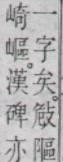 一字矣。䧢
崎嶇。漢碑亦